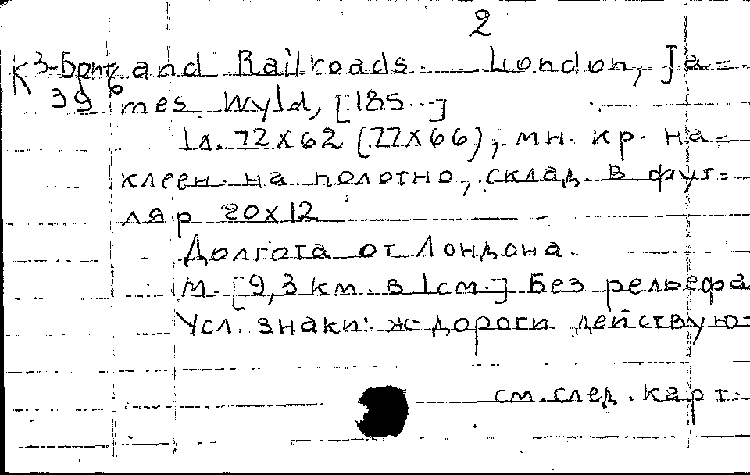 2
К 3-Брит and Railroads. London, Ja=
39 6 mes Wyld, [185..]
1л. 72x62 (77x66), мн. кр. на=
клеен. на полотно, склад. в фут=
ляр 20x12
Долгота от Лондона.
М. [9,3 км. в 1см.] Без рельефа
Усл. знаки: ж-дороги действую=
см. след. карт.